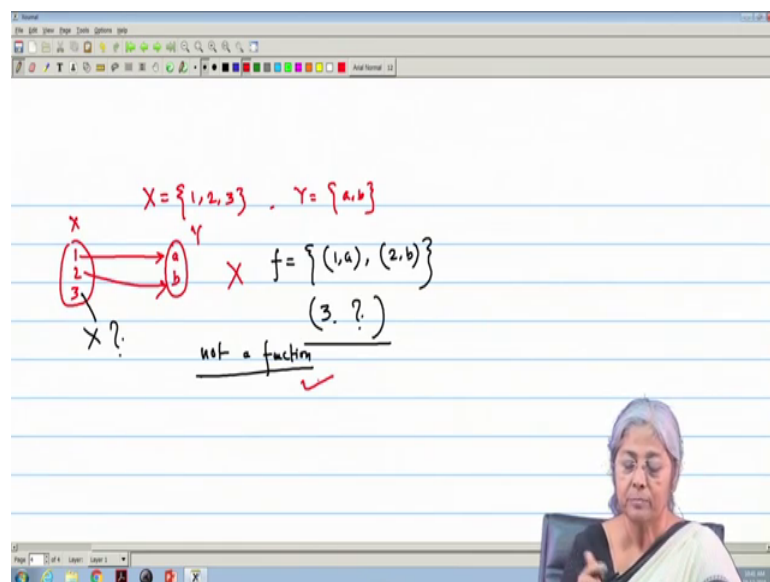 Journal
File Edit View Page Tools Options Help
Arial Normal 12
X = {1, 2, 3} . Y = {a, b}
X Y
1 a
2 b
3
X f = {(1, a), (2, b)}
(3. ?)
X ?
not a fuction
Page 4 of 4 Layer: Layer 1